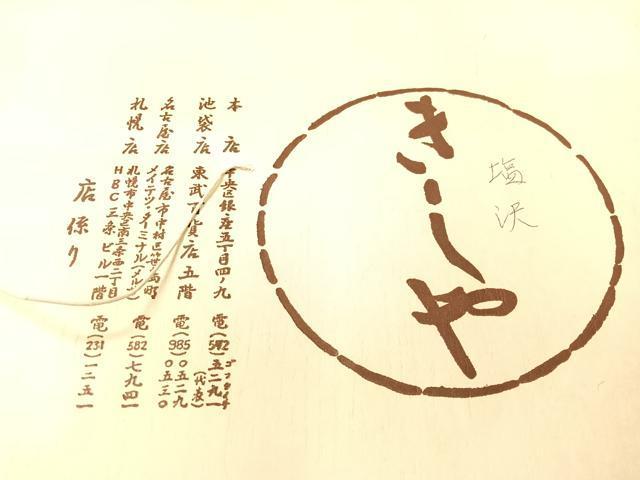 塩沢
きしや
本店 中央区銀座五丁目四ノ九 電(572)五二九一(代表)
池袋店 東武百貨店五階 電(985)〇五二九
〇五三〇
名古屋店 名古屋市中村区笹島町
メイテツ・ターミナル(メルサ) 電(582)七九四一
札幌店 札幌市中央区南三条西二丁目
HBC三条ビル一階 電(231)一二五一
店係り